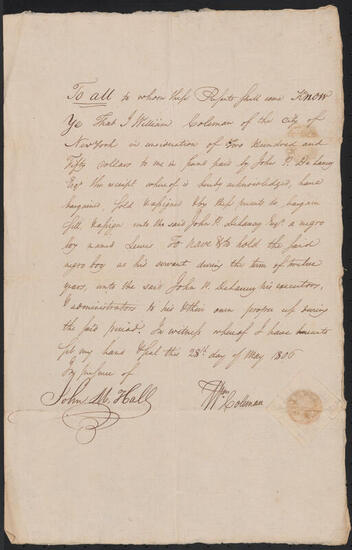 To all to whom these Presents shall come Know
Ye That I William Coleman of the City of
New York in consideration of Two Hundred and
Fifty dollars to me in hand paid by John P. Delancy
Esqr the receipt whereof is hereby acknowledged, have
bargained, Sold & assigned & by these presents do bargain
Sell & assign unto the said John P. Delancey Esqr a negro
boy named Lewis To have & to hold the said
negro boy as his servant during the term of twelve
years, unto the said John P. Delancey his executors,
& administrators to his & their own proper use during
the said period. In witness whereof I have hereunto
Set my hand & Seal this 28th day of May 1806
In presence of
John M. Hall
Wm Coleman